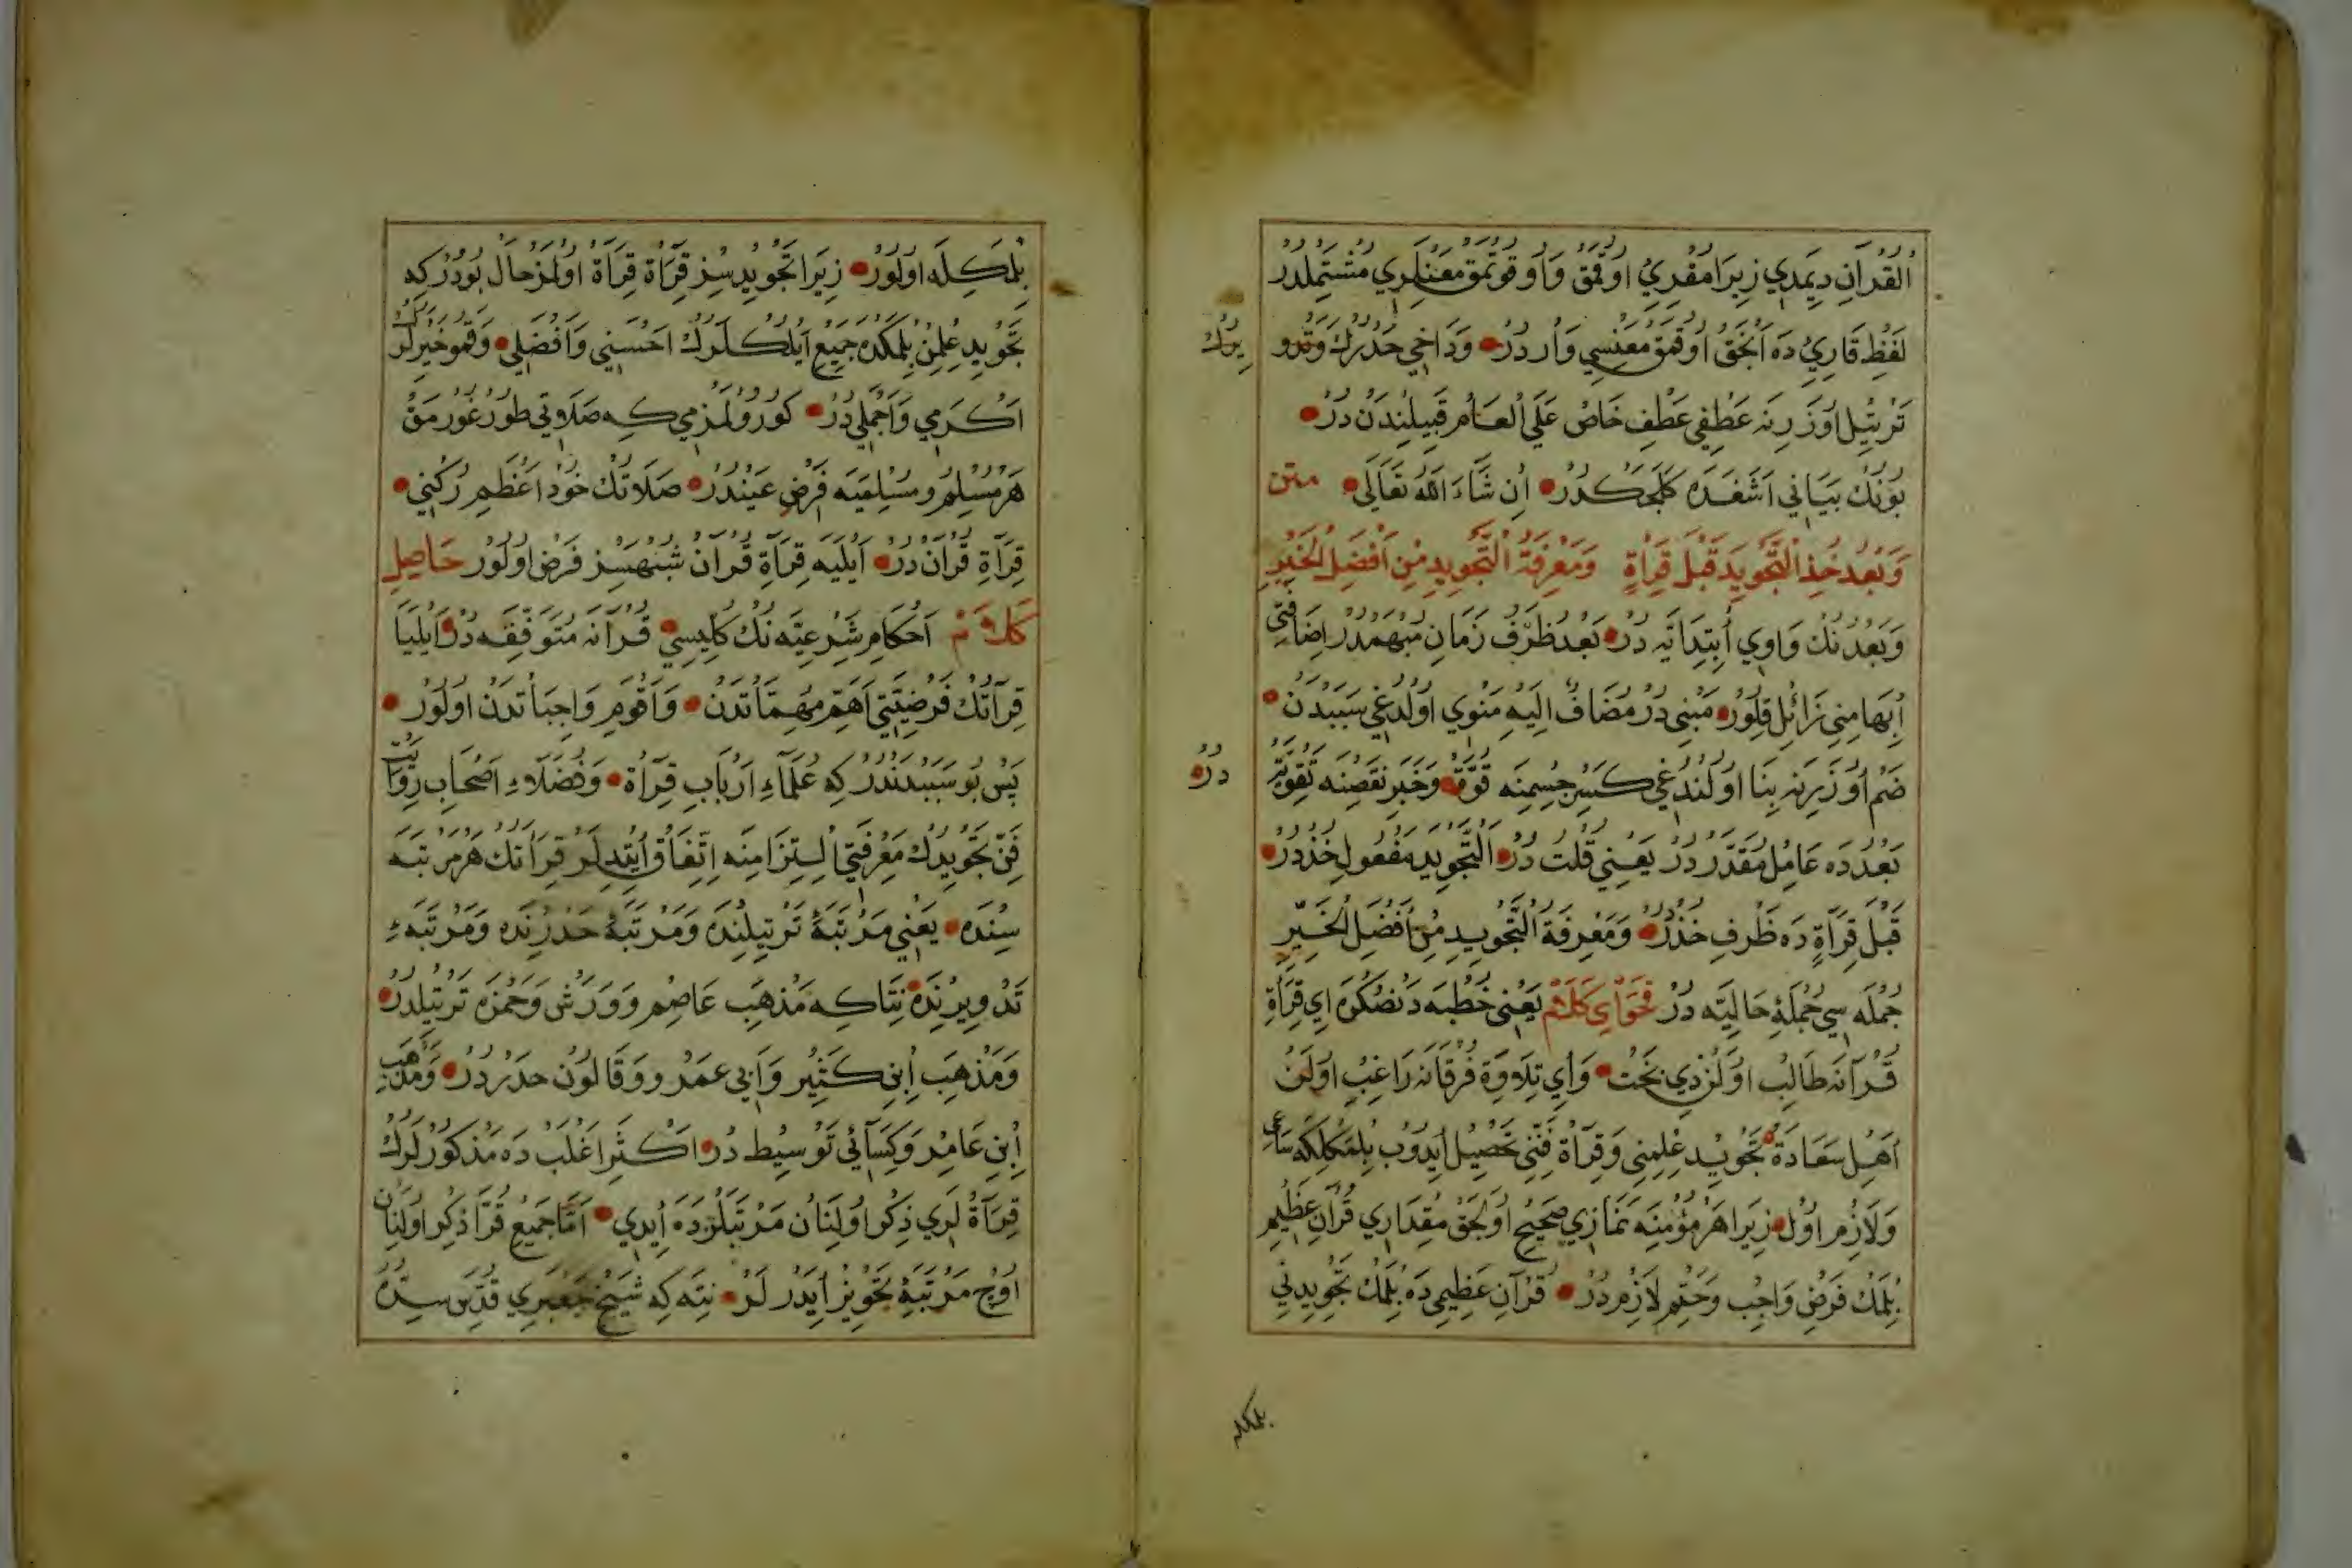 اُلْقُرْآنِ دِيَمَدِي زِيرَا مُقْرِيُ اوُقُمَقْ وَاوُقُوتْمَقْ مَعْنَلَرِي مُشْتَمِلْدُرْ
لَفْظِ قَارِيُ دَه اَنْجَقْ اوُقُمَقْ مَعْنِسِي وَارْ دُرْ وَدَاخِي حَدْرُكْ وَتَدْو
يرُكْ
تَرْتِيلْ اوُزَرِنَه عَطْفِي عَطْفِ خَاصْ عَلَي اُلْعَامْ قَبِيلِنْدَنْ دُرْ
بُونُكْ بَيَانِي اَشَغَدَه كَلَجَكْدُرْ اِنْ شَاءَ اللهُ تَعَالَى متن
وَبَعْدُ خُذِ اْلتَّجْوِيدَ قَبْلَ قِرَأةٍ وَمَعْرِفَةُ اْلتَّجْوِيدِ مِنْ اَفْضَلِ اْلخَيْرِ
وَبَعْدُ نُكْ وَاوِي اُبْتِدَائِيَه دُرْ بَعْدُ ظَرْفُ زَمَانِ مُبْهَمْدُرْ اِضَافَتِي
اِبْهَامِنِي زَائِلْ قِلُورْ مَبْنِي دُرْ مُضَافٌ اِلَيْهِ مَنْوِي اوُلْدُغِي سَبَبْدَنْ
ضَمْ اوُزَرِنَه بِنَا اوُلُنْدُغِي كَسْنِ جِسْمِنَه قُوَّةْ وَخَبَرِ نَقْصِنَه تَقْوِيَةْ
دُرْ
بَعْدُدَه عَامِلْ مُقَدَّرْ دُرْ يَعْنِي قُلْتُ دُرْ اَلتَّجْوِيدَ مَفْعُولِ خُذْدُرْ
قَبْلَ قِرَأةٍ دَه ظَرْفِ خُذْدُرْ وَمَعْرِفَةُ اْلتَّجْوِيدِ مِنْ اَفْضَلِ اْلخَيْرِ
جُمْلَه سِي جُمْلَۀِ حَالِيَّه دُرْ فَحْوَايِ كَلَامْ يَعْنِي خُطْبَه دَنْصُكْرَه اِي قِرَأةِ
قُرْآنَه طَالِبْ اوُلَنْ ذِي بَخْتْ وَاَي تِلَاوَةِ فُرْقَانَه رَاغِبْ اوُلَنْ
اَهْلِ سَعَادَةْ تَجْوِيدْ عِلْمِنِي وَقِرَأةْ فَنِّنِي تَحْصِيلْ اَيدُوبْ بِلْمَكْلِكَه سَاعِي
وَلَازِمْ اوُلْ زِيرَا هَرْ مُؤْمِنَه نَمَازِي صَحِيحْ اوُلَجَقْ مِقْدَارِي قُرْآنِ عَظِيمْ
بِلْمَكْ فَرْضْ وَاجِبْ وَحَتْمْ لَازِمْ دُرْ قُرْآنِ عَظِيمِي دَه بِلْمَكْ تَجْوِيدِنِي
بلمكله
بِلْمَكِلَه اوُلُورْ زِيرَا تَجْوِيدْ سِزْ قِرَأةْ قِرَأةْ اوُلْمَزْ حَالْ بُودُرْكِه
تَجْوِيدِ عِلْمِنْ بِلْمَكْدَه جَمِيعِ اَيُلِكْلَرُكْ اَحْسَنِي وَاَفْضَلِي وَقَمُو خَيْرَلَرُكْ
اَكْرَمِي وَاَجْمَلِي دُرْ كُورُولْمَزْمِي كِه صَلَاوتِي طُورْغُورْمَقْ
هَرْ مُسْلِمْ وَمُسْلِمَيَه فَرْضِ عَيْنْدُرْ صَلَاتُكْ خُوذْ اَعْظَمْ رُكْنِي
قِرَأةِ قُرْآنْ دُرْ اَيْلَيَه قِرَأةِ قُرْآنْ شُبْهَسِزْ فَرْضْ اوُلُورْ حَاصِلِ
كَلَامْ اَحْكَامِ شَرْعِيَّه نُكْ كُلِّيسِي قُرْآنَه مُتَوَقِّفَه دُرْ اَيْلَيَا
قِرَأتُكْ فَرْضِيَّتِي اَهَمِّ مُهِمَّاتْدَنْ وَاَقْوَمِ وَاجِبَاتْدَنْ اوُلُورْ
پَسْ بُو سَبَبْدَنْدُرْ كِه عُلَمَاءِ اَرْبَابِ قِرَأةْ وَفُضَلَاءِ اَصْحَابِ رِوَايَتْ
فَنِّ تَجْوِيدُكْ مَعْرِفَتِي اِلْتِزَامِنَه اِتِّفَاقْ اَيْتِدِلَرْ قِرَأتُكْ هَرْ مَرْتَبَه
سِنْدَه يَعْنِي مَرْتَبَۀِ تَرْتِيلِنْدَه وَمَرْتَبَۀِ حَدْرِنْدَه وَمَرْتَبَۀِ
تَدْوِيرِنْدَه نِتَاكِه مَذْهَبِ عَاصِمْ وَوَرْشْ وَحَمْزَه تَرْتِيلْدُرْ
وَمَذْهَبِ اِبْنِ كَثِيرْ وَاَبِي عَمْرُو وَقَالُونْ حَدْرْدُرْ وَمَذْهَبِ
اِبْنِ عَامِرْ وَكِسَائِي تَوْسِيطْ دُرْ اَكْثَرِ اَغْلَبْ دَه مَذْكُورْلَرُكْ
قِرَأةْ لَرِي ذِكْرْ اوُلِنَانْ مَرْتَبَلَرْدَه اَيْدِي اَمَّا جَمِيعِ قُرَّا ذِكْرْ اوُلِنَانْ
اوُچْ مَرْتَبَۀِ تَجْوِيزْ اَيْدَرْلَرْ نِتَه كِه شَيْخْ جَعْبَرِي قُدِّسَ سِرُّه